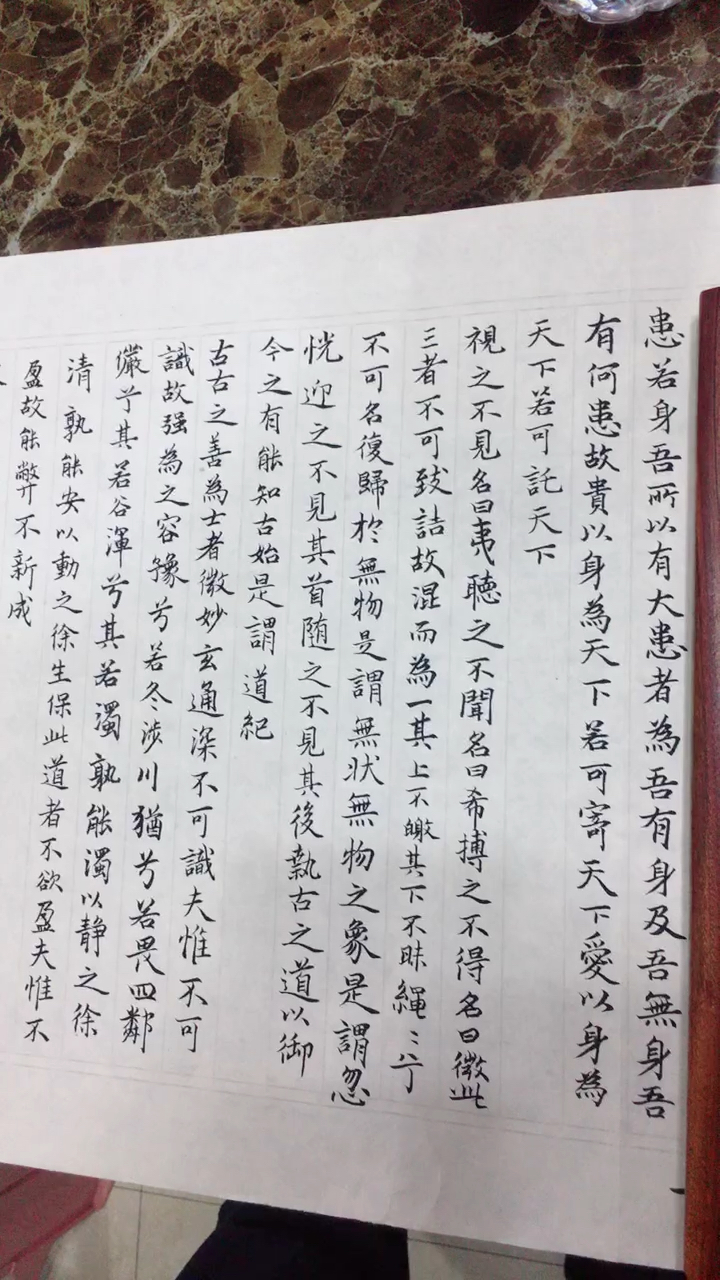 患若身吾所以有大患者為吾有身及吾無身吾
有何患故貴以身為天下若可寄天下愛以身為
天下若可託天下
視之不見名曰夷聽之不聞名曰希搏之不得名曰微此
三者不可致詰故混而為一其上不皦其下不昧繩〻兮
不可名復歸於無物是謂無状無物之象是謂忽
恍迎之不見其首随之不見其後執古之道以御
今之有能知古始是謂道紀
古古之善為士者微妙玄通深不可識夫惟不可
識故强為之容豫兮若冬涉川猶兮若畏四鄰
儼兮其若谷渾兮其若濁孰能濁以静之徐
清孰能安以動之徐生保此道者不欲盈夫惟不
盈故能弊不新成